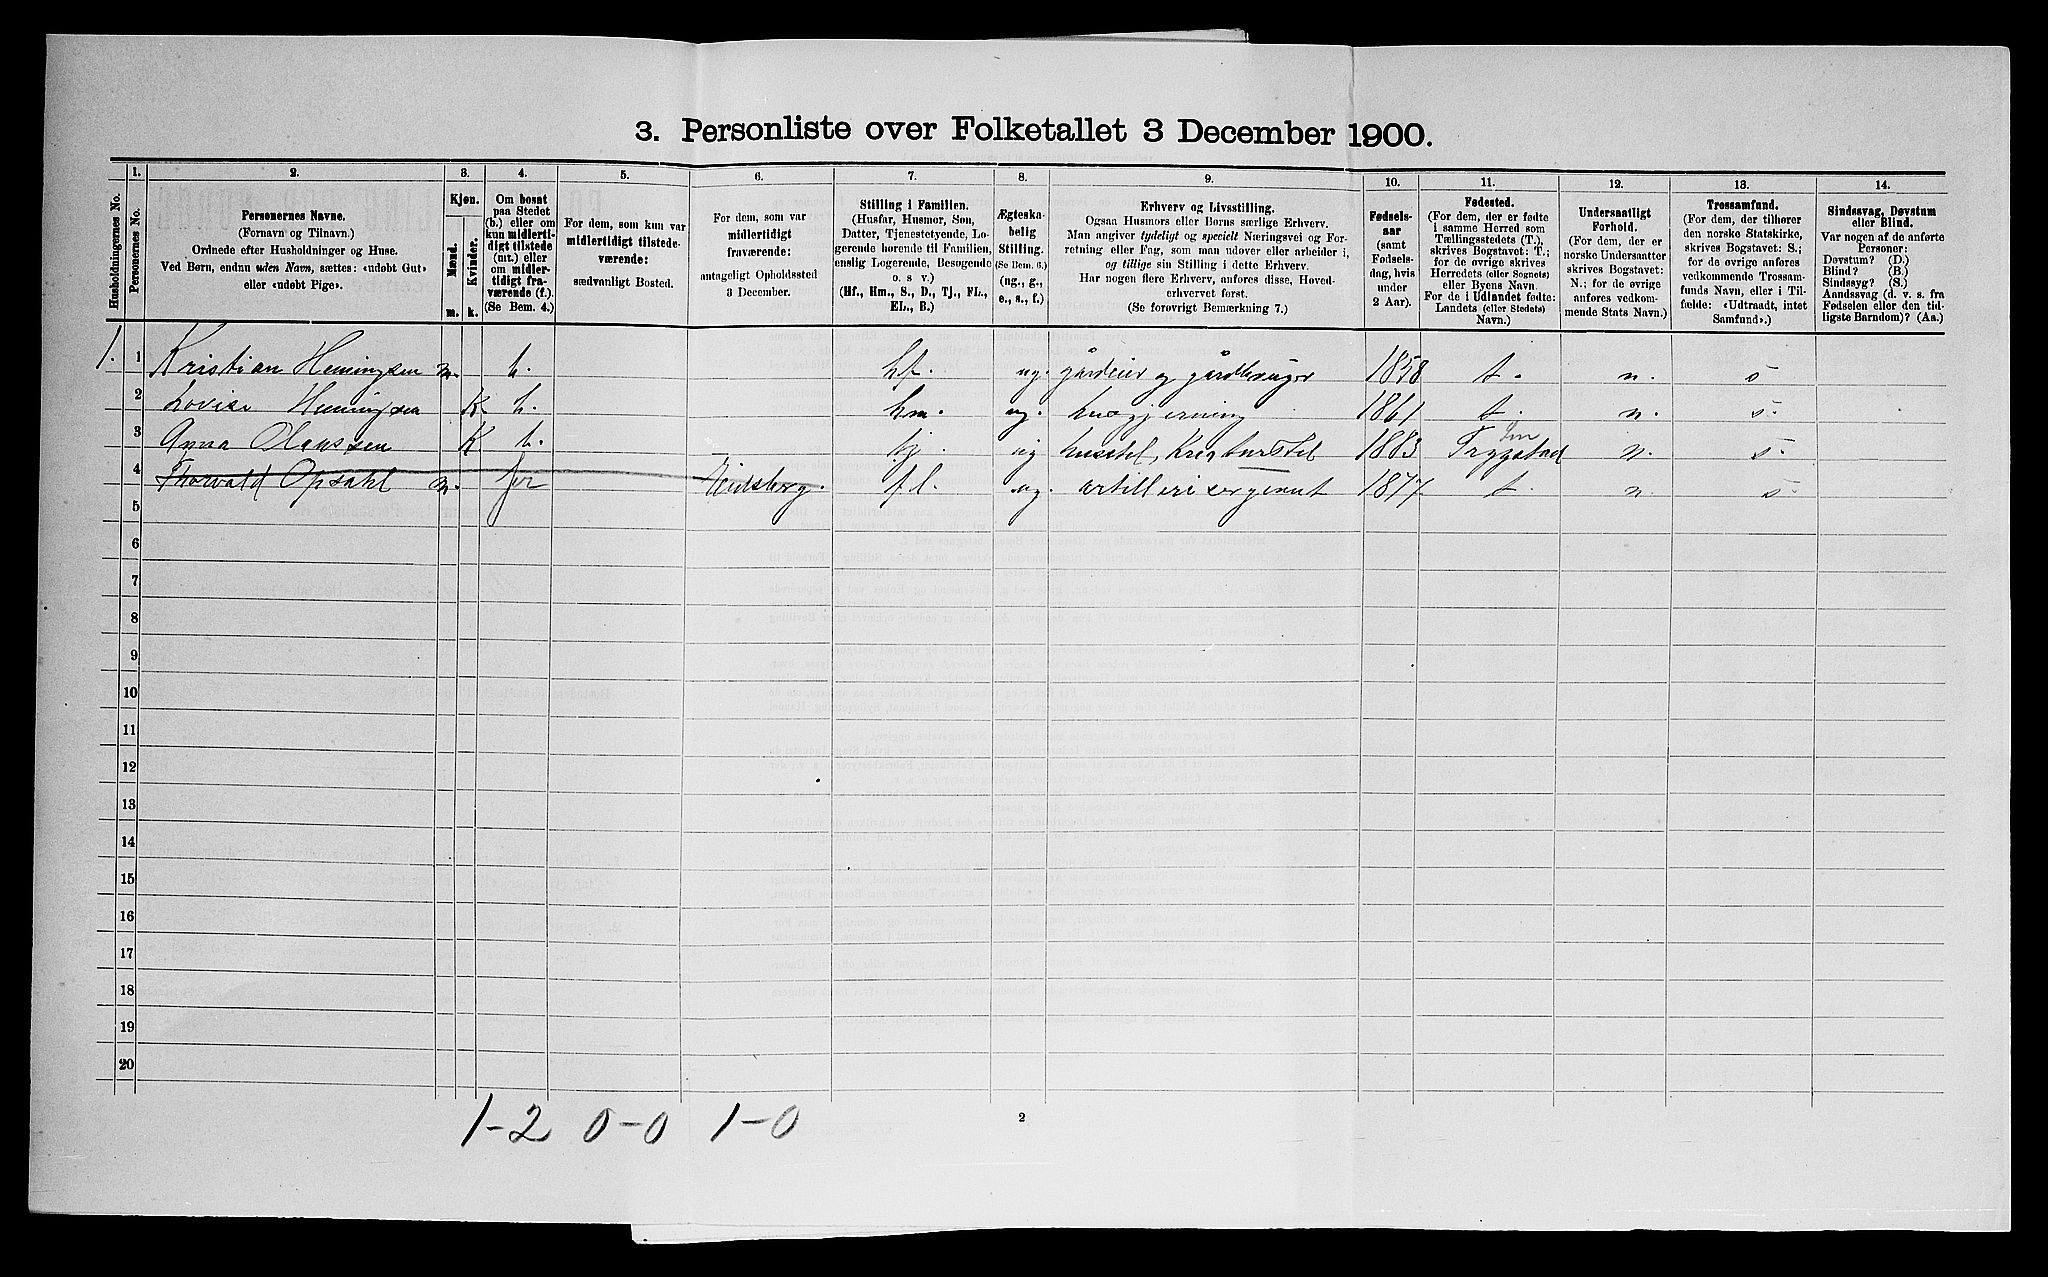 3. Personliste over Folketallet 3 December 1900.
Husholdningernes No.
1.
Personernes No.
2.
Personernes Navne.
(Fornavn og Tilnavn.)
Ordnede efter Husholdninger og Huse.
Ved Børn, endnu uden Navn, sættes: «udøbt Gut»
eller «udøbt Pige».
3.
Kjøn.
Mænd.
Kvinder.
m.
k.
4.
Om bosat
paa Stedet
(b.) eller om
kun midlerti-
digt tilstede
(mt.) eller
om midler-
tidigt fra-
værende (f.).
(Se Bem. 4.)
5.
For dem, som kun var
midlertidigt tilstede-
værende:
sædvanligt Bosted.
6.
For dem, som var
midlertidigt
fraværende:
antageligt Opholdssted
3 December.
7.
Stilling i Familien.
(Husfar, Husmor, Søn,
Datter, Tjenestetyende, Lo-
gerende hørende til Familien,
enslig Logerende, Besøgende
o. s. v.)
(Hf., Hm., S., D., Tj., FL.,
EL., B.)
8.
Ægteska-
belig
Stilling.
(Se Bem. 6.)
(ug., g.,
e., s., f.)
9.
Erhverv og Livsstilling.
Ogsaa Husmors eller Børns særlige Erhverv.
Man angiver tydeligt og specielt Næringsvei og For-
retning eller Fag, som man udøver eller arbeider i,
og tillige sin Stilling i dette Erhverv.
Har nogen flere Erhverv, anføres disse, Hoved-
erhvervet først.
(Se forøvrigt Bemærkning 7.)
10.
Fødsels-
aar
(samt
Fødsels-
dag, hvis
under
2 Aar).
11.
Fødested.
(For dem, der er fødte
i samme Herred som
Tællingsstedets (T.),
skrives Bogstavet: T.;
for de øvrige skrives
Herredets (eller Sognets)
eller Byens Navn.
For de i Udlandet fødte:
Landets (eller Stedets)
Navn.)
12.
Undersaatligt
Forhold.
(For dem, der er
norske Undersaatter
skrives Bogstavet:
N.; for de øvrige
anføres vedkom-
mende Stats Navn.)
13.
Trossamfund.
(For dem, der tilhører
den norske Statskirke,
skrives Bogstavet: S.;
for de øvrige anføres
vedkommende Trossam-
funds Navn, eller i Til-
fælde: «Udtraadt, intet
Samfund».)
14.
Sindssvag, Døvstum
eller Blind.
Var nogen af de anførte
Personer:
Døvstum? (D.)
Blind? (B.)
Sindssyg? (S.)
Aandssvag (d. v. s. fra
Fødselen eller den tid-
ligste Barndom)? (Aa.)
1. 1 Kristian Hemingsen m. b. hf. ug. gårdeier og gårdbruger 1858 t. n. s
2 Lovise Hemingsen K. b. hm. ug. husgjerning 1861 t. n. s.
3 Anna Olaussen K b. tj. ug husstel, Kreaturstel 1883 Trygstad n. s.
4 Thorvald Opsahl m. fr Eidsberg. f.l. ug. artillerisergeant 1877 t. n. s.
5
6
7
8
9
10
11
12
13
14
15
16
17
18
19
20
1-2 0-0 1-0
2